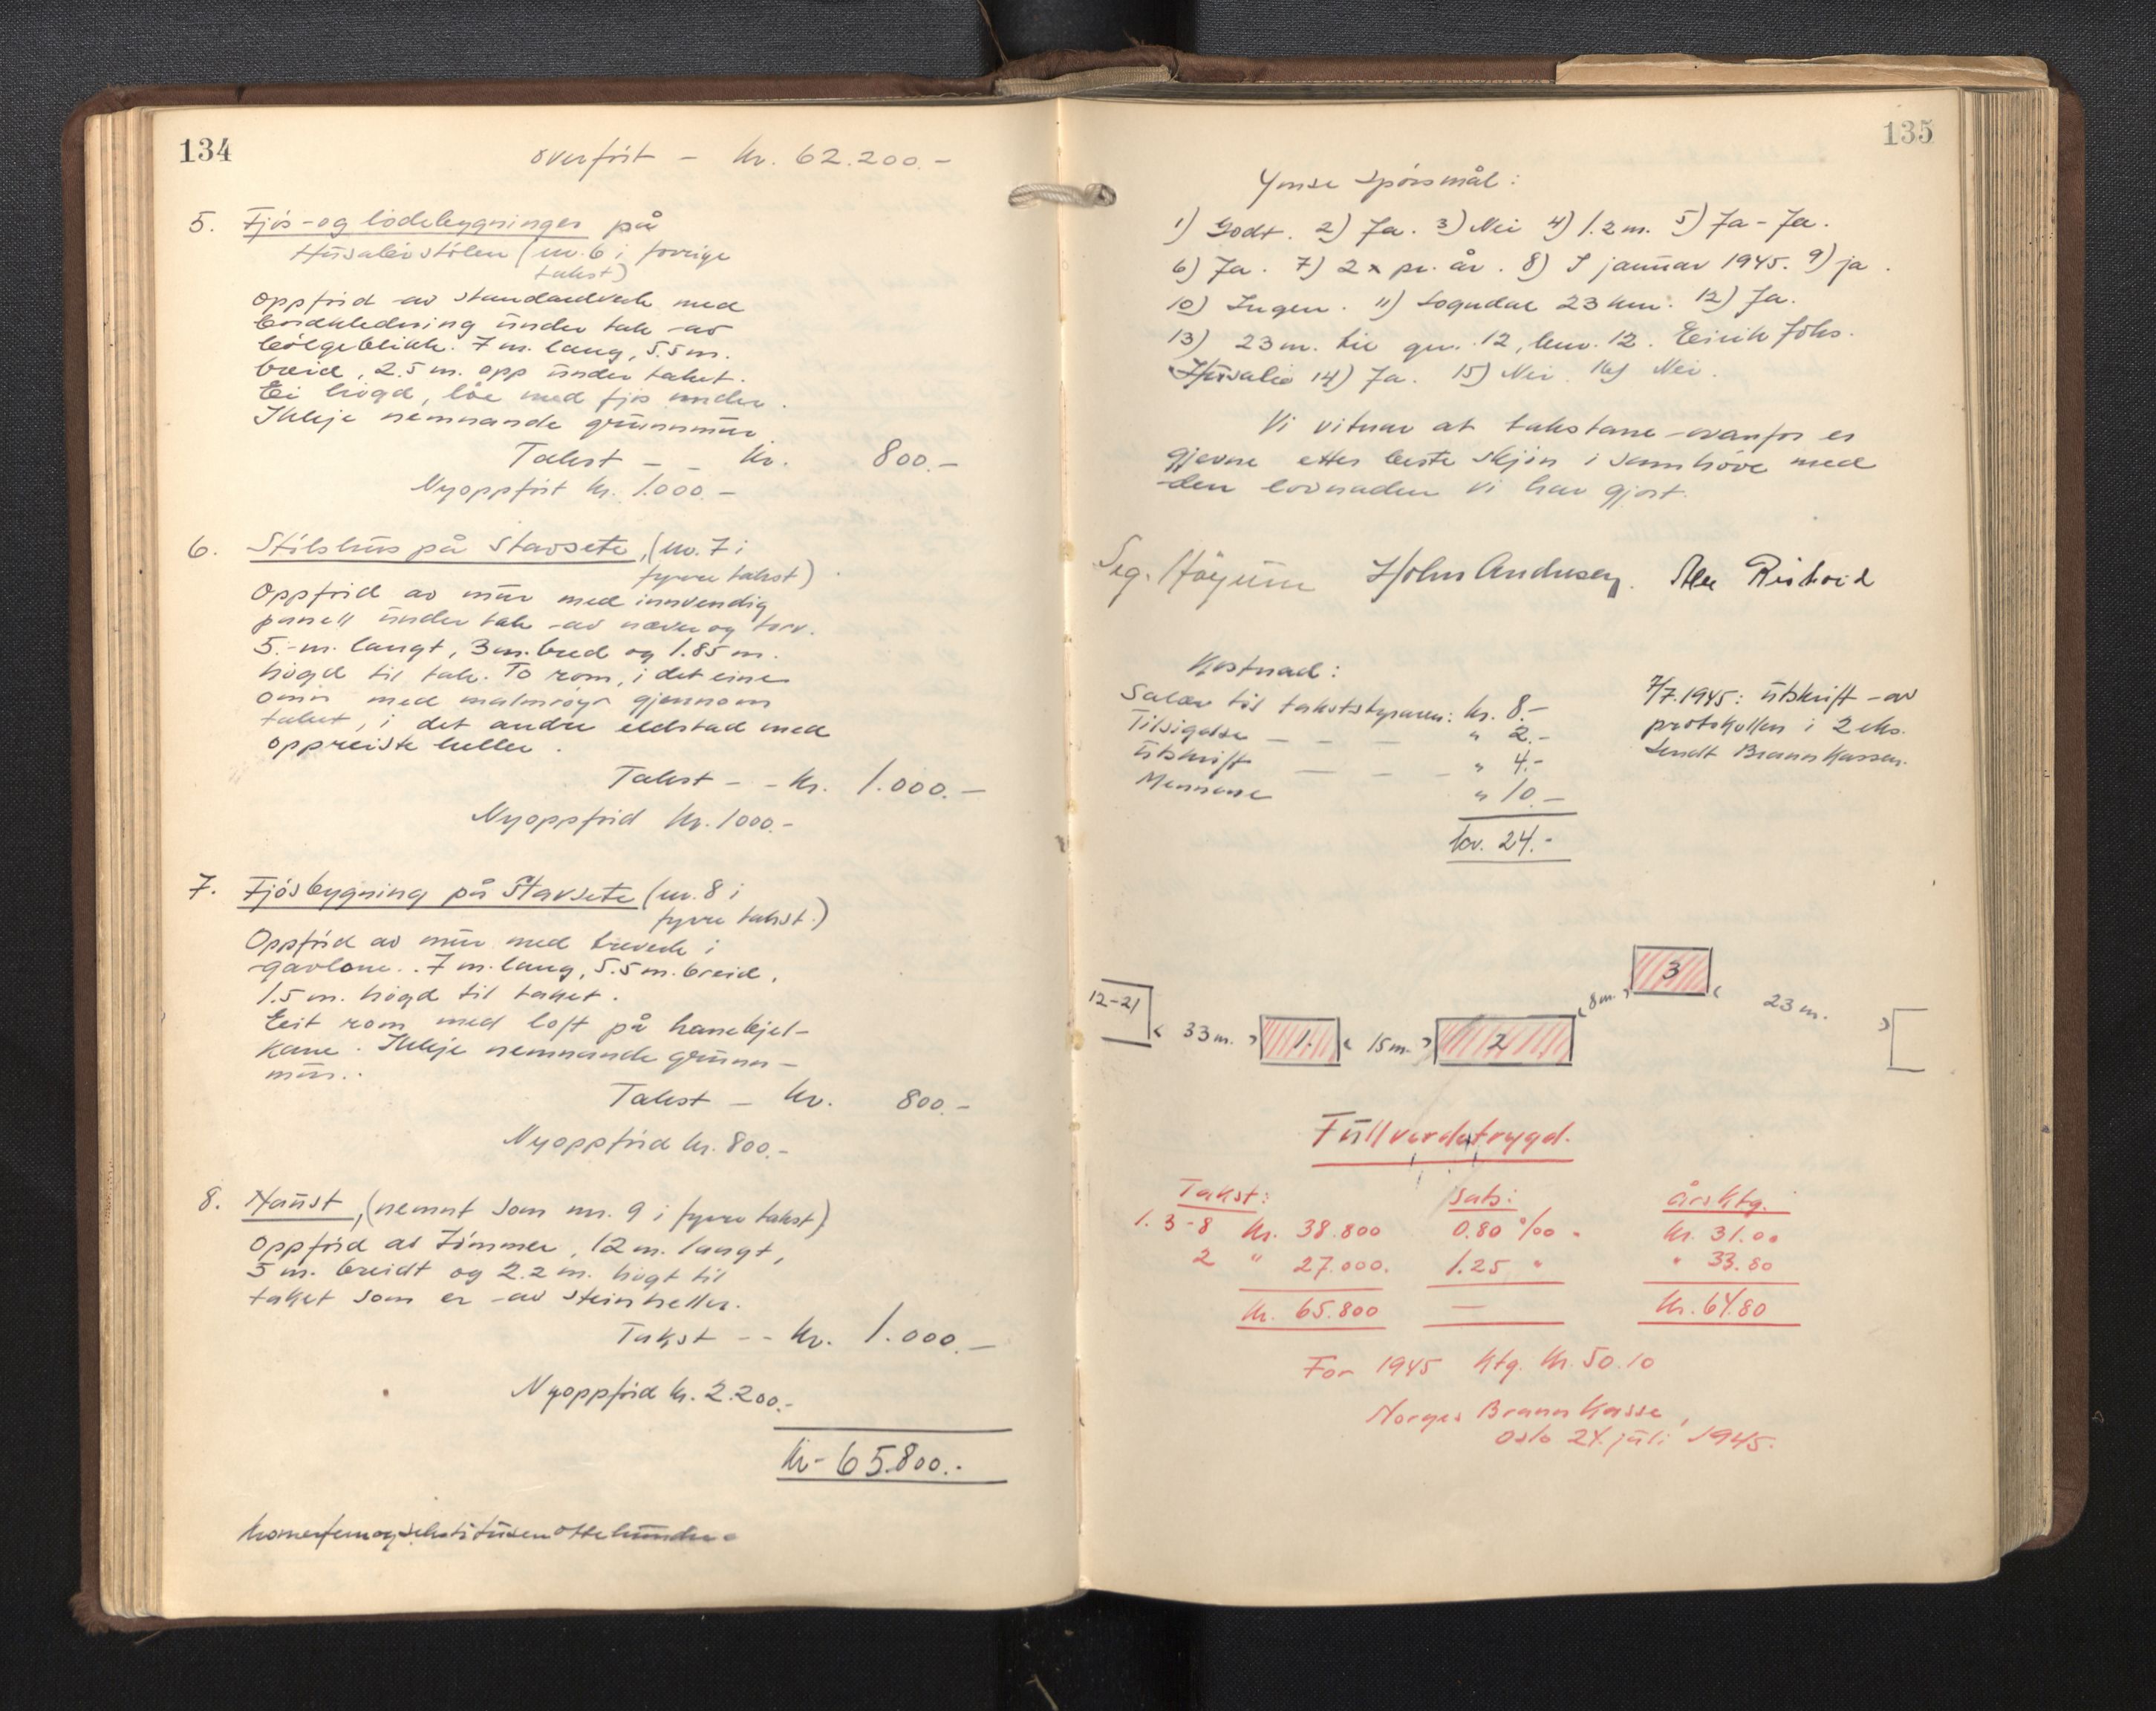 134
overført - kr. 62.200.-
5. Fjøs- og lødebygningen på
Husaliastølen (nr. 6 i forrige
takst)
Oppförd av standardverk med
bordkledning under tak av
bølgeblikk. 7 m. lang, 5.5 m.
breid, 2.5 m. opp under taket.
Ei högd, löe med fjös under.
Ikkje nemnande grunnmur.
Takst - - kr. 800.-
Nyoppfört kr. 1.000.-
6. Stölshus på Stavsete, (nr. 7 i
fyrre takst)
Oppförd av mur med innvendig
panell under tak av næver og torv.
5.- m. langt, 3 m. breid og 1.85 m.
högd til tak. To rom, i det eine
omn med malmröyr gjennom
taket, i det andre eldstad med
oppreiste heller.
Takst - - kr. 1.000.-
Nyoppförd kr. 1000.-
7. Fjösbygning på Stavsete (nr. 8 i
fyrre takst.)
Oppförd av mur med treverk i
gavlane. 7 m. lang, 5.5 m. breid,
1.5 m. högd til taket.
Eit rom med loft på hanebjel-
kane. Ikkje nemnande grunn-
mur.
Takst - kr. 800.-
Nyoppförd kr. 800.-
8. Naust, (nemnt som nr. 9 i fyrre takst)
Oppförd av tömmer, 12 m. langt,
5 m. breidt og 2.2 m. högt til
taket som er av steinheller.
Takst - - kr. 1.000.-
Nyoppförd kr. 2.200.-
kr. 65.800.-
kronerfemogsekstitusenottehundre
135
Ymse spörsmål:
1) Godt. 2) Ja. 3) Nei 4) 1.2 m. 5) Ja - Ja.
6) Ja. 7) 2 x pr. år. 8) I januar 1945. 9) ja.
10) Ingen. 11) Sogndal 23 km. 12) Ja.
13) 23 m. til gnr. 12, bnr. 12. Eirik Johs.
Husalid 14) Ja. 15) Nei. 16) Nei.
Vi vitnar at takstane ovanfor er
gjevne etter beste skjön i samhöve med
den lovnaden vi har gjort.
John Andresen.
Kostnad:
Salær til takststyraren: kr. 8.-
Tilsigelse - - - " 2.-
Utskrift - - - " 4.-
Mennene " 10.-
kr. 24.-
7/7.1945: Utskrift av
protokollen i 2 eks.
sendt Brannkassen.
3
12-21 33 m. 1. 15 m. 2 8 m. 23 m.
Fullverdstrygd.
Takst: Sats: årsktg.
1. 3-8 kr. 38.800 0.80 ‰ kr. 31.00
2 " 27.000. 1.25 " " 33.80
kr. 65.800 - kr. 64.80
For 1945 ktg. kr. 50.10
Norges Brannkasse,
Oslo 24. juli 1945.